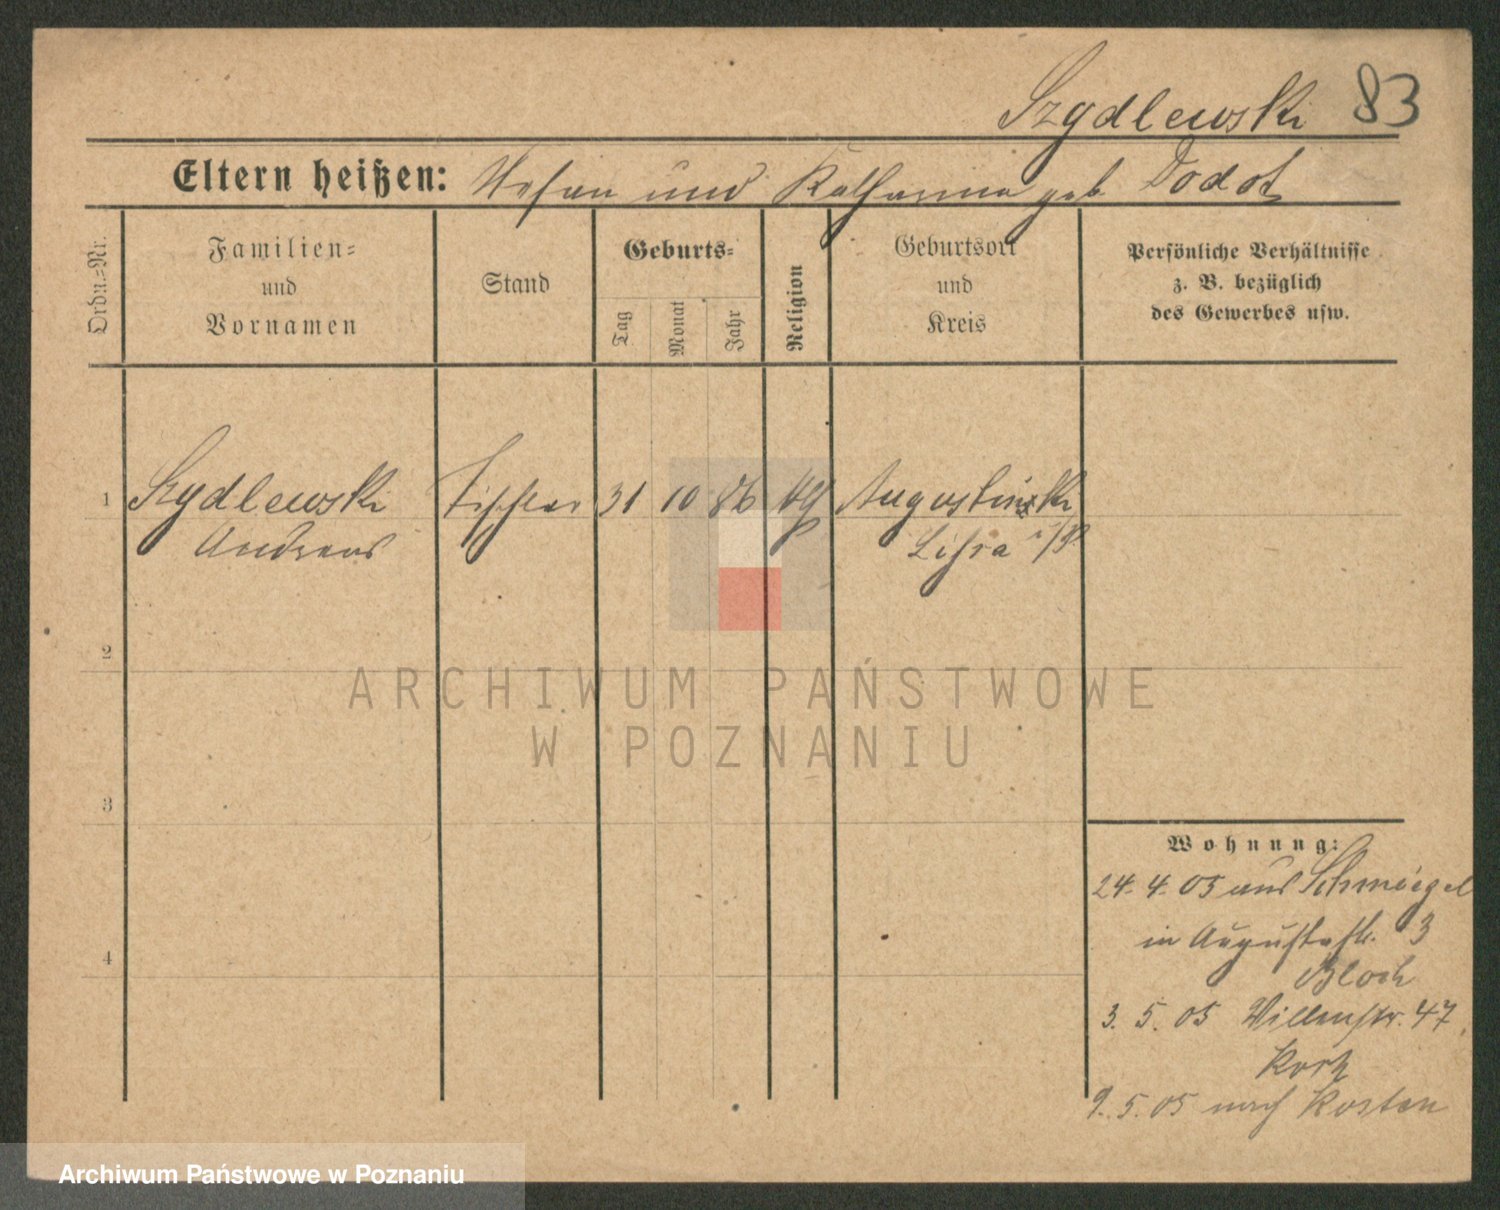 Szydlewski 83
Eltern heißen: Stefan und Katharina geb Dodot
Ordn.-Nr.
Familien-
und
Vornamen
Stand
Geburts-
Tag
Monat
Jahr
Religion
Geburtsort
und
Kreis
Persönliche Verhältnisse
z. B. bezüglich
des Gewerbes usw.
1 Szydlewski Tischler 31 10 86 Augustinski
Andreas Lissa i/P
2
ARCHIWUM PAŃSTWOWE
W POZNANIU
3
Wohnung:
24. 4. 05 aus Schmiegel
in Augustastr. 3
Bloch
4
3. 5. 05 Willenstr. 47
9. 5. 05 nach Kosten
Archiwum Państwowe w Poznaniu